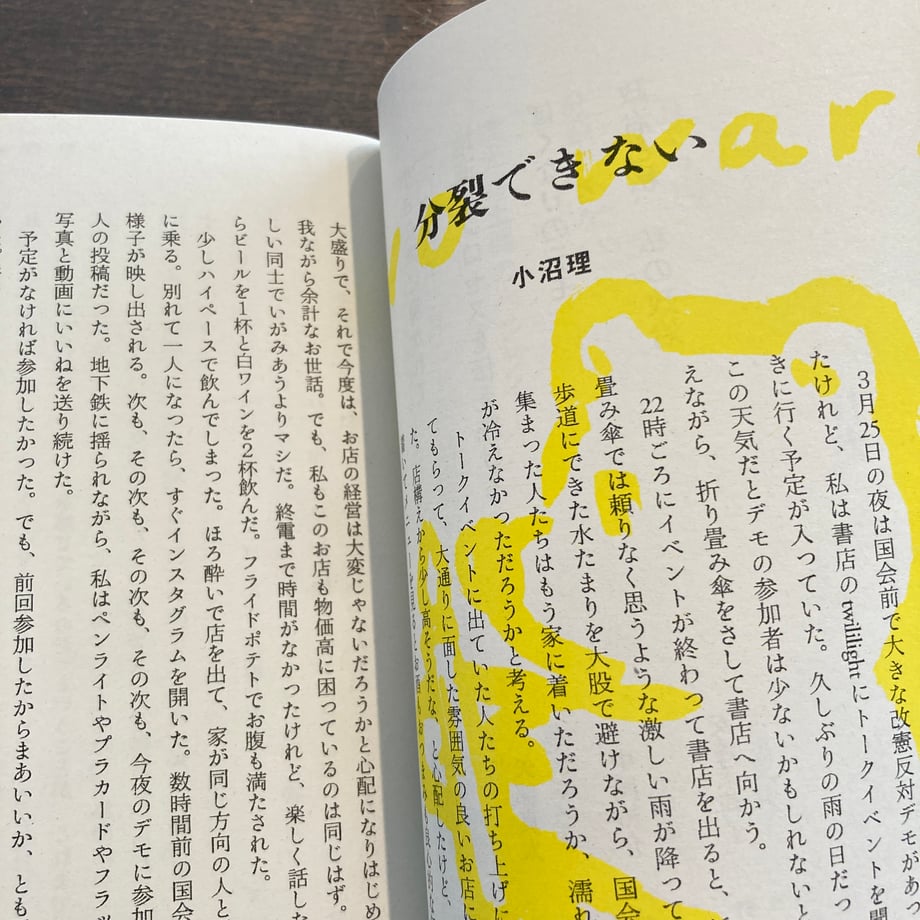 no war
分裂できない
小沼理
3月25日の夜は国会前で大きな改憲反対デモがあっ
たけれど、私は書店のtwililightにトークイベントを聞
きに行く予定が入っていた。久しぶりの雨の日だっ
この天気だとデモの参加者は少ないかもしれないと
えながら、折り畳み傘をさして書店へ向かう。
22時ごろにイベントが終わって書店を出ると、
畳み傘では頼りなく思うような激しい雨が降って
歩道にできた水たまりを大股で避けながら、国会
集まった人たちはもう家に着いただろうか、濡れ
が冷えなかっただろうかと考える。
トークイベントに出ていた人たちの打ち上げに
てもらって、大通りに面した雰囲気の良いお店に
た。店構えから少し高そうだな、と心配したけど、
大盛りで、それで今度は、お店の経営は大変じゃないだろうかと心配になりはじめ
我ながら余計なお世話。でも、私もこのお店も物価高に困っているのは同じはず。
しい同士でいがみあうよりマシだ。終電まで時間がなかったけれど、楽しく話した
らビールを1杯と白ワインを2杯飲んだ。フライドポテトでお腹も満たされた。
少しハイペースで飲んでしまった。ほろ酔いで店を出て、家が同じ方向の人と
に乗る。別れて一人になったら、すぐインスタグラムを開いた。数時間前の国会
様子が映し出される。次も、その次も、その次も、その次も、今夜のデモに参加
人の投稿だった。地下鉄に揺られながら、私はペンライトやプラカードやフラッ
写真と動画にいいねを送り続けた。
予定がなければ参加したかった。でも、前回参加したからまあいいか、とも